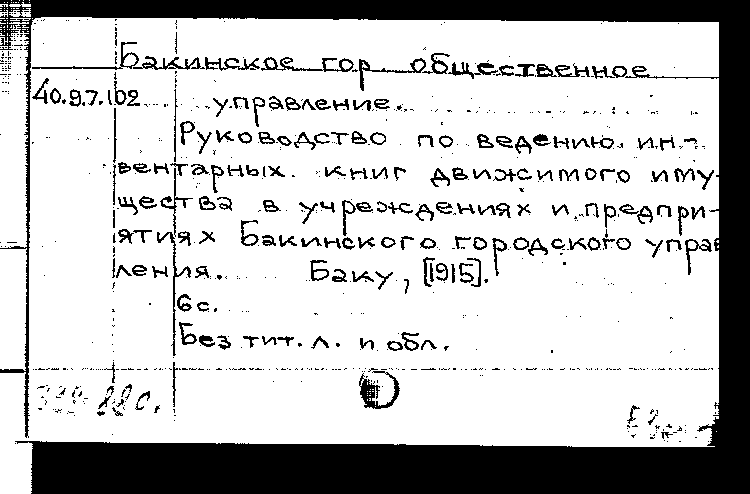 Бакинское гор. общественное
40.9.7.102 управление.
Руководство по ведению ин-
вентарных книг движимого иму-
щества в учреждениях и предпри-
ятиях Бакинского городского управ
ления. Баку, [1915].
6 с.
Без тит. л. и обл.
88 с.